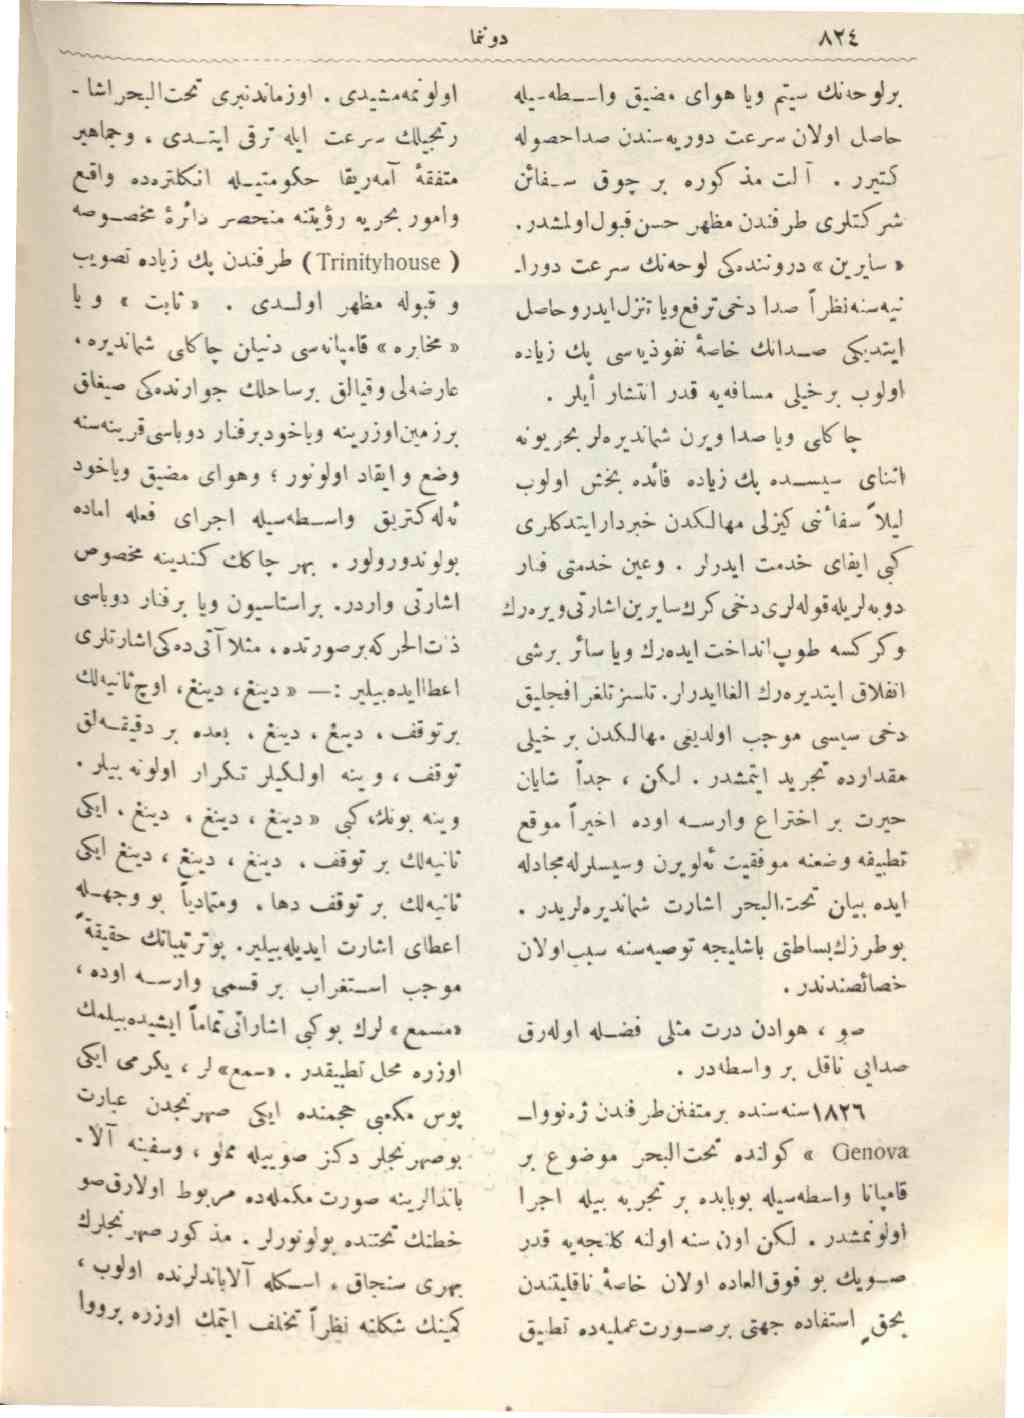 ٨٢٤
دوننما
برلوحه‌نك سيتم ويا هواى مضيق واسطه‌سيله
حاصل اولان سرعت دوريه‌سندن صداحصوله
كتيرر . آلت مذكوره بر چوق سفائن
شركتلرى طرفندن مظهر حسن قبول‌اولمشدر.
« سايرين » دروننده‌كى لوحه‌نك سرعت دورا-
نيه‌سنه‌نظراً صدا دخى‌ترفع‌ويا تنزل‌ايدر‌وحاصل
ايتديكى صدانك خاصهٔ نفوذيه‌سى پك زياده
اولوب برخيلى مسافه‌يه قدر انتشار أيلر .
چاكلى ويا صدا ويرن شمانديره‌لر بحريونه
اثناى سيسده پك زياده فائده بخش اولوب
ليلاً سفائنى كيزلى مهالكدن خبردارايتدكلرى
كبى ايفاى خدمت ايدرلر . وعين خدمتى فنار
دوبه‌لريله‌قوله‌لرى‌دخى كرك‌سايرين‌اشارتى‌ويره‌رك
وكركسه طوپ‌انداخت ايده‌رك ويا سائر برشى
انفلاق ايتديره‌رك الفاايدرلر. تلسز تلغرافجيليق
دخى سيسى موجب اولديغى مهالكدن برخيلى
مقدارده تجريد ايتمشدر . لكن ، جداً شايان
حيرت بر اختراع وارسه اوده اخيراً موقع
تطبيقه وضعنه موفقيت ئه‌لويرن وسيسلرله‌مجادله
ايده بيلن تحت‌البحر اشارت شمانديره‌لريدر .
بوطرزك‌بساطتى باشليجه توصيه‌سنه سبب‌اولان
خصائصندندر .
صو ، هوادن درت مثلى فضله اوله‌رق
صدايى ناقل بر واسطه‌در .
١٨٢٦سنه‌سنده برمتفنن‌طرفندن ژه‌نووا-
Genova » كولنده تحت‌البحر موضوع بر
قامپانا واسطه‌سيله بوبابده بر تجربه بيله اجرا
اولونمشدر . لكن اون سنه اولنه كلنجه‌يه قدر
صويك بو فوق‌العاده اولان خاصهٔ ناقليتندن
بحق استفاده جهتى برصورت‌عمليه‌ده تطبيق
اولونمه‌مشيدى . اوزماندنبرى تحت‌البحراشا-
رتجيلك سرعت ايله ترقى ايتدى ، وجماهير
متفقهٔ آمه‌ريقا حكومتيله انكلتره‌ده واقع
وامور بحريه رؤيتنه منحصر دائرهٔ مخصوصه
( Trinityhouse ) طرفندن پك زياده تصويب
و قبوله مظهر اولدى . « ثابت » ويا
« مخابره » قامپانه‌سى دنيلن چاكلى شمانديره ،
عارضه‌لى وقيالق برساحلك جوارنده‌كى صيغلق
برزمين‌اوزرينه وياخودبرفنار دوباسى‌قرينه‌سنه
وضع و ايقاد اولونور ؛ وهواى مضيق وياخود
ئه‌له‌كتريق واسطه‌سيله اجراى فعله اماده
بولوندورولور . بهر چاكك كندينه مخصوص
اشارتى واردر. براستاسيون ويا برفنار دوباسى
ذات‌الحركه‌برصورتده، مثلا آتى‌ده‌كى‌اشارتلرى
اعطاايده‌بيلير :— « دينغ، دينغ، اوچ‌ثانيه‌لك
برتوقف ، دينغ ، دينغ ، بعده بر دقيقه‌لق
توقف ، وينه اولكيلر تكرار اولونه‌بيلر .
وينه بونك كبى « دينغ ، دينغ ، دينغ . ايكى
ثانيه‌لك بر توقف . دينغ ، دينغ ، دينغ ايكى
ثانيه‌لك بر توقف دها . ومتمادياً بو وجهله
اعطاى اشارت ايديله‌بيلير. بوترتيباتك حقيقةً
موجب استغراب بر قسمى وارسه اوده ،
«مسمع» لرك بوكبى اشاراتى‌تماماً ايشيده‌بيلمك
اوزره محل تطبيقدر . «سمع» لر ، يكرمى ايكى
پوس مكعبى حجمنده ايكى صهرنجدن عبارت
بوصهرنجلر دكز صوييله مملو ، وسفينه آلا.
باندالرينه صورت مكمله‌ده مربوط اولارق‌صو
خطنك تحتنده بولونورلر . مذكور صهرنجلرك
بهرى سنجاق ، اسكله آلاباندلرنده اولوب ،
كمينك شكلنه نظراً تخلف ايتمك اوزره برووا